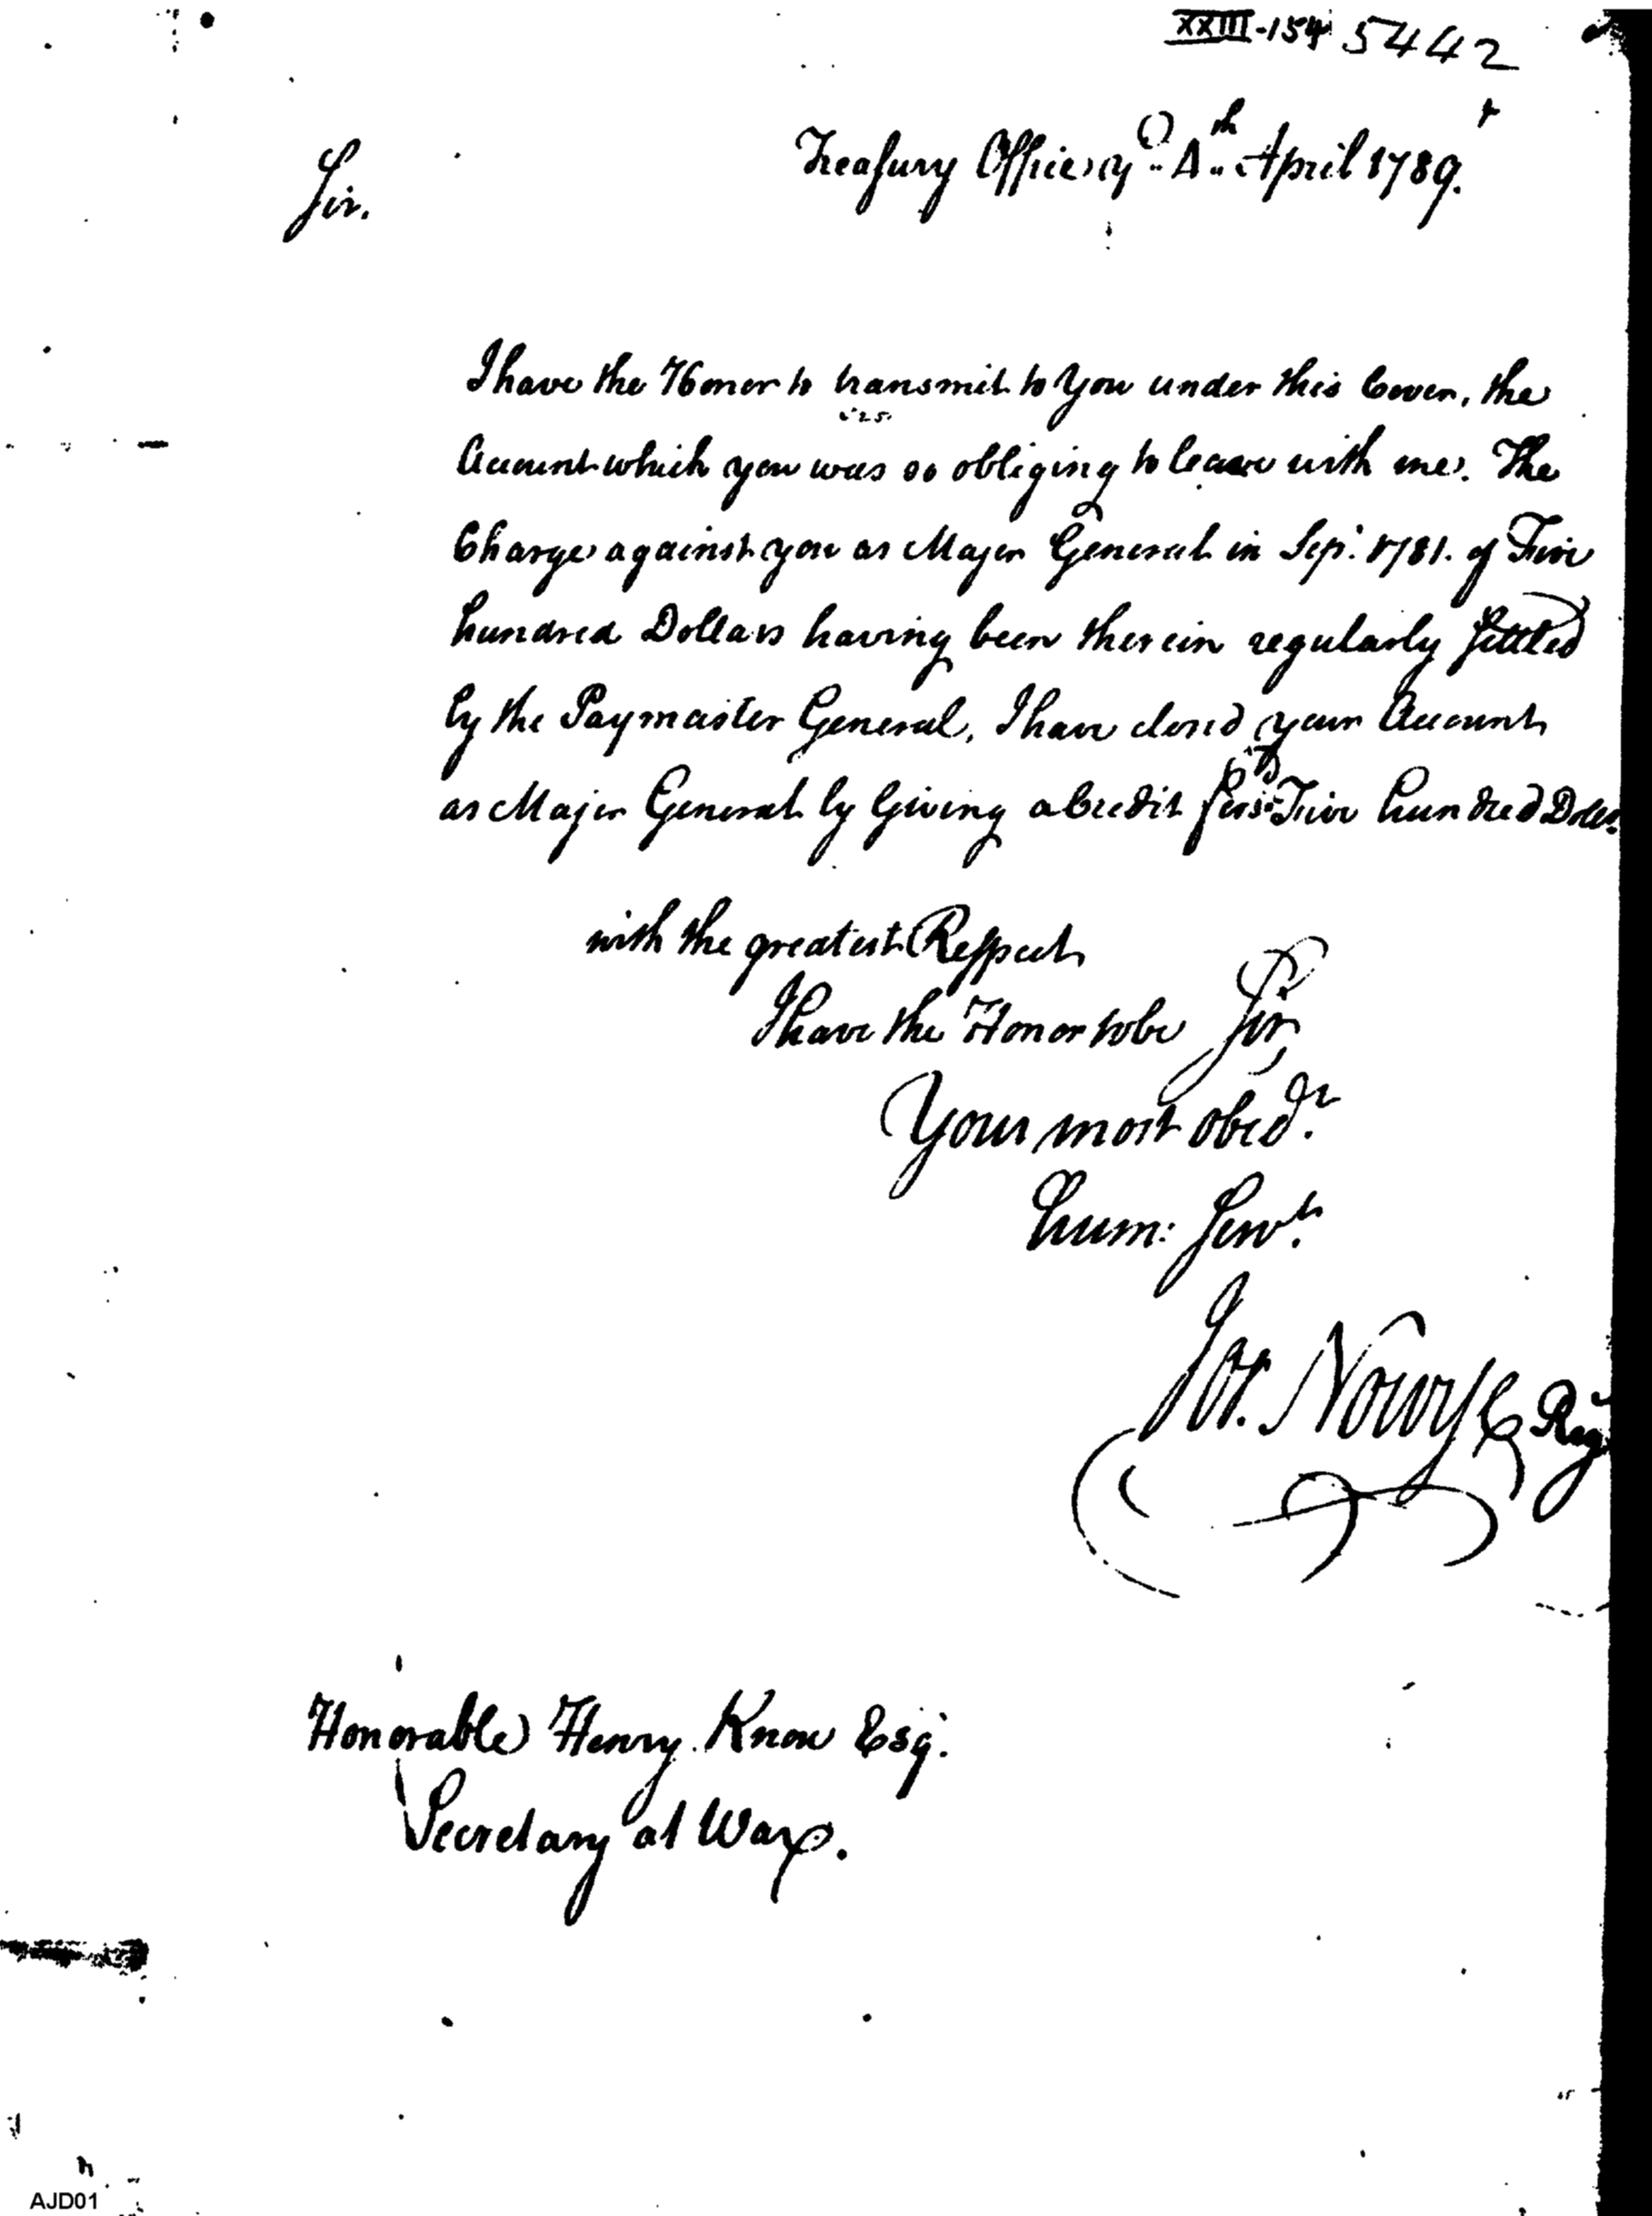 XXIII-154 5442
Treasury Office, y.e 4.th April 1789.
Sir.
I have the Honor to transmit to You under this Cover, the
Account which you was so obliging to leave with me. The
Charge against you as Major General in Sep.t 1781. of Five
hundred Dollars having been therein regularly settled
by the Paymaster General, I have closed your Account
as Major General by Giving a Credit for s.d Five hundred Dolls.
with the greatest Respect
I have the Honor to be Sir,
Your most obed.t
hum: Serv.t
Jos. Nourse Reg.r
Honorable Henry Knox Esq.r
Secretary at War.
AJD01